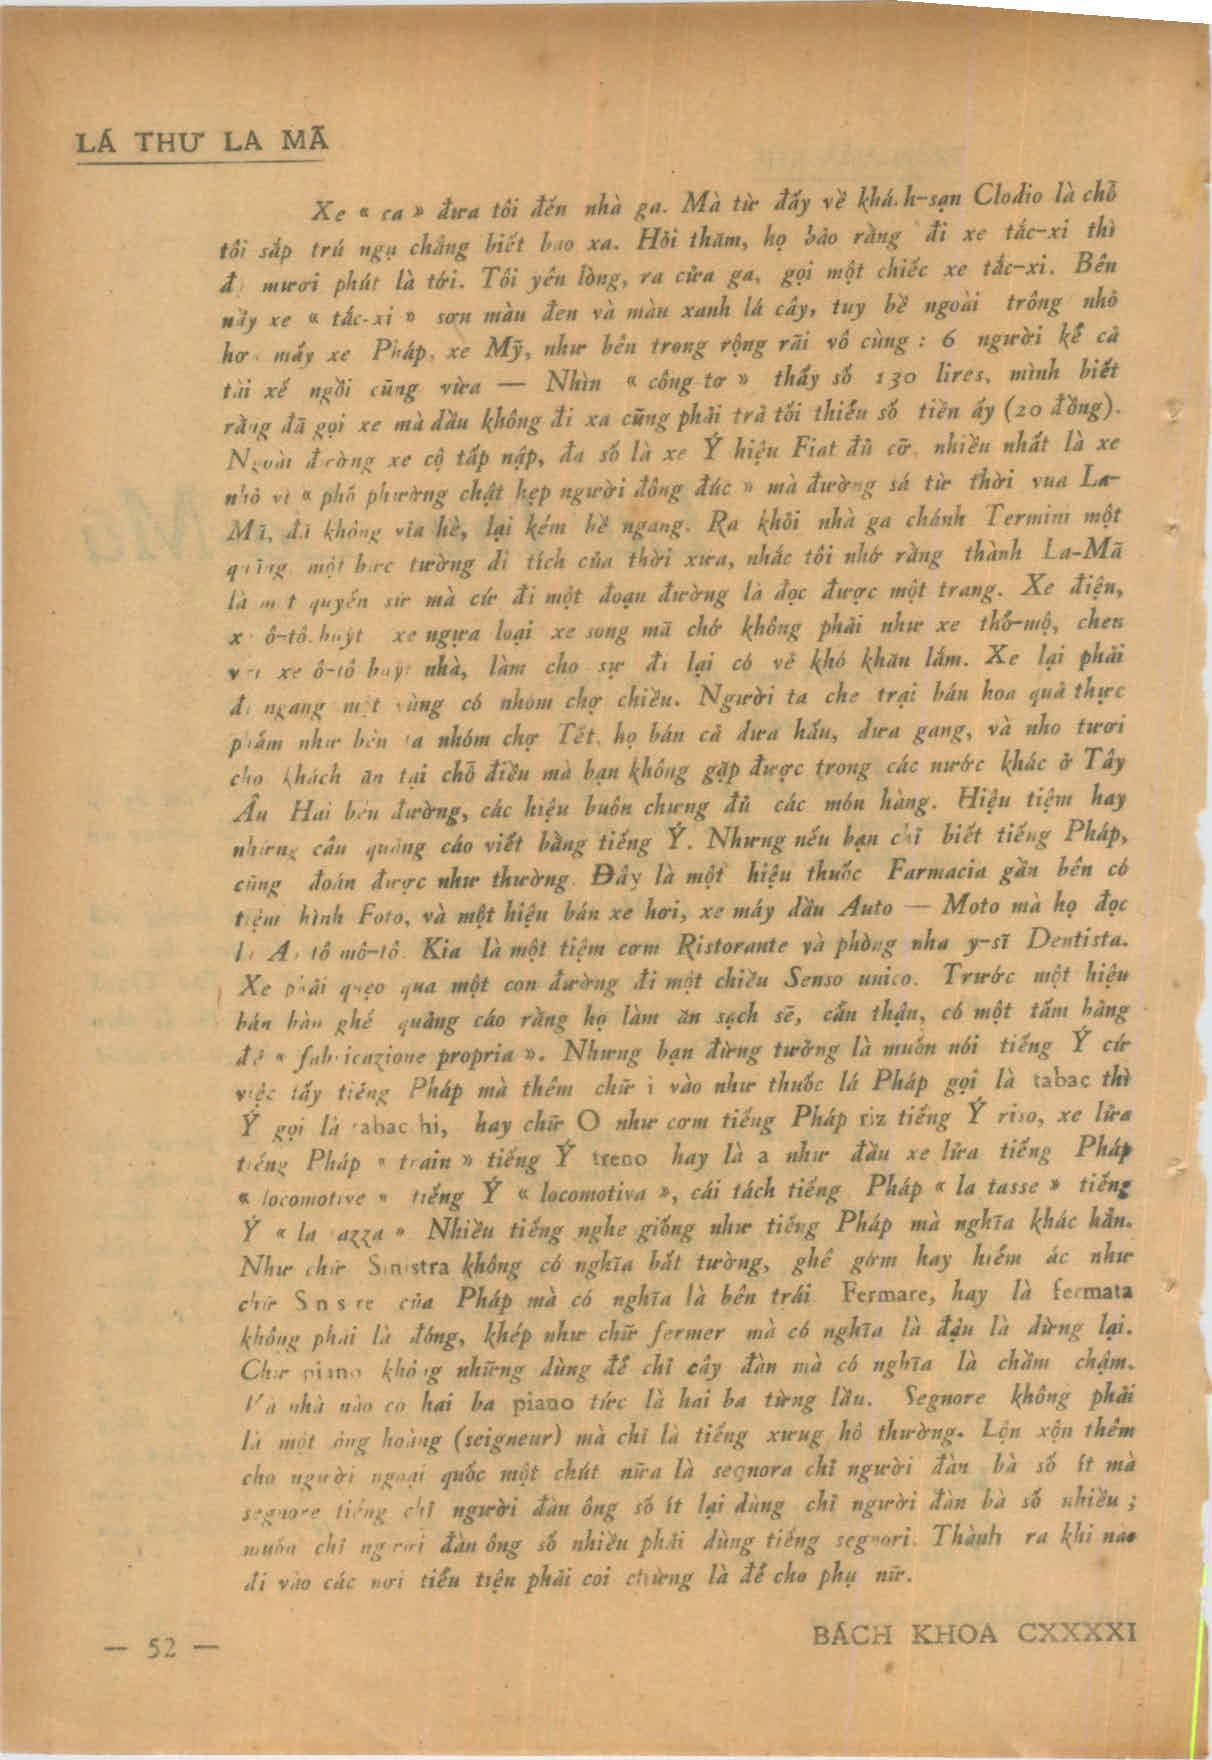 LÁ THƯ LA MÃ
Xe « ca » đưa tôi đến nhà ga. Mà từ đấy về khá.h-sạn Clodio là chỗ
tôi sắp trú ngụ chẳng biết bao xa. Hỏi thăm, họ bảo rằng đi xe tắc-xi thì
đ mươi phút là tới. Tôi yên lòng, ra cửa ga, gọi một chiếc xe tắc-xi. Bên
nầy xe « tắc-xi » sơn màu đen và màu xanh lá cây, tuy bề ngoài trông nhỏ
hơ mấy xe Pháp, xe Mỹ, như bên trong rộng rãi vô cùng : 6 người kể cả
tài xế ngồi cũng vừa — Nhìn « công-tơ » thấy số 130 lires, mình biết
rằng đã gọi xe mà dầu không đi xa cũng phải trả tối thiểu số tiền ấy (20 đồng).
Ngoài đường xe cộ tấp nập, đa số là xe Ý hiệu Fiat đủ cỡ, nhiều nhất là xe
nhỏ vì « phố phường chật hẹp người đông đúc » mà đường sá từ thời vua La-
Mã, đã không vỉa hè, lại kém bề ngang. Ra khỏi nhà ga chánh Termini một
quãng, một bức tường di tích của thời xưa, nhắc tôi nhớ rằng thành La-Mã
là m t quyển sử mà cứ đi một đoạn đường là đọc được một trang. Xe điện,
x ô-tô.buýt xe ngựa loại xe song mã chớ không phải như xe thổ-mộ, chen
với xe ô-tô buýt nhà, làm cho sự đi lại có vẻ khó khăn lắm. Xe lại phải
đi ngang một vùng có nhóm chợ chiều. Người ta che trại bán hoa quả thực
phẩm như bên ta nhóm chợ Tết, họ bán cả dưa hấu, dưa gang, và nho tươi
cho khách ăn tại chỗ điều mà bạn không gặp được trong các nước khác ở Tây
Âu Hai bên đường, các hiệu buôn chưng đủ các món hàng. Hiệu tiệm hay
những câu quảng cáo viết bằng tiếng Ý. Nhưng nếu bạn chỉ biết tiếng Pháp,
cũng đoán được như thường. Đây là một hiệu thuốc Farmacia gần bên có
tiệm hình Foto, và một hiệu bán xe hơi, xe máy dầu Auto — Moto mà họ đọc
là A tô mô-tô. Kia là một tiệm cơm Ristorante và phòng nha y-sĩ Dentista.
Xe phải quẹo qua một con đường đi một chiều Senso unico. Trước một hiệu
bán bàn ghế quảng cáo rằng họ làm ăn sạch sẽ, cẩn thận, có một tấm bảng
đề « fabricazione propria ». Nhưng bạn đừng tưởng là muốn nói tiếng Ý cứ
việc lấy tiếng Pháp mà thêm chữ i vào như thuốc lá Pháp gọi là tabac thì
Ý gọi là tabacchi, hay chữ O như cơm tiếng Pháp riz tiếng Ý riso, xe lửa
tiếng Pháp « train » tiếng Ý treno hay là a như đầu xe lửa tiếng Pháp
« locomotive » tiếng Ý « locomotiva », cái tách tiếng Pháp « la tasse » tiếng
Ý « la azza » Nhiều tiếng nghe giống như tiếng Pháp mà nghĩa khác hẳn.
Như chữ Sinistra không có nghĩa bất tường, ghê gớm hay hiểm ác như
chữ S n s re của Pháp mà có nghĩa là bên trái Fermare, hay là fermata
không phải là đóng, khép như chữ fermer mà có nghĩa là đậu là dừng lại.
Chữ piano không những dùng để chỉ cây đàn mà có nghĩa là chầm chậm.
Và nhà nào có hai ba piano tức là hai ba từng lầu. Segnore không phải
là một ông hoàng (seigneur) mà chỉ là tiếng xưng hô thường. Lộn xộn thêm
cho người ngoại quốc một chút nữa là segnora chỉ người đàn bà số ít mà
segnore tiếng chỉ người đàn ông số ít lại dùng chỉ người đàn bà số nhiều ;
muốn chỉ người đàn ông số nhiều phải dùng tiếng segnori. Thành ra khi nào
đi vào các nơi tiểu tiện phải coi chừng là để cho phụ nữ.
— 52 —
BÁCH KHOA CXXXXI